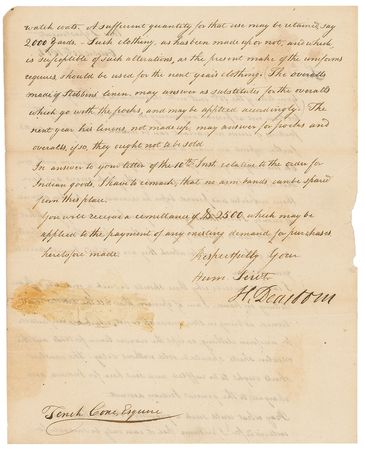 watch coats. A sufficient quantity for that use may be retained say
2,000 yards. Such clothing, as has been made up or not, and which,
is susceptible of such alterations, as the present make of the uniforms
requires should be used for the next year's clothing. The overalls
made of linen, may answer as substitutes for the overalls
which go with the frocks, and may be applied accordingly. The
next year his linens, not made up, may answer for frocks and
overalls, if so, they ought not to be sold
In answer to your letter of the 10th Inst relative to the order for
Indian goods, I have to remark, that no arm bands can be spared
from this place.
You will receive a remittance of $2500, which may be
applied to the payment of any existing demand for purchases
heretofore made.
Respectfully Your
Hum Servt
H. Dearborn
Tench Coxe, Esquire